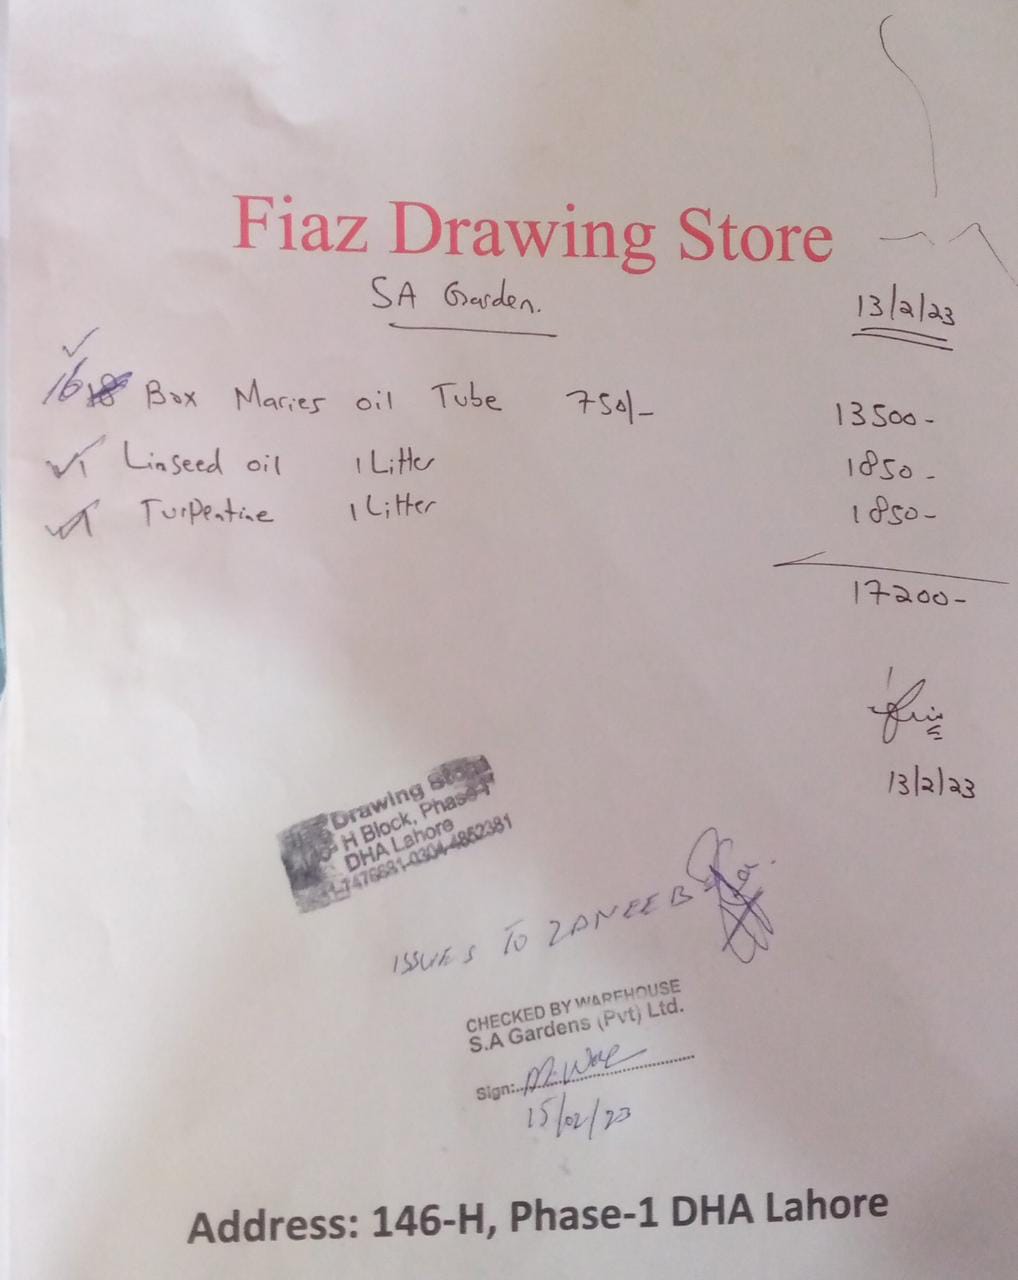 Fiaz Drawing Store
SA Garden.
13/2/23
16 18 Box Maries oil Tube 750/- 13500-
1 Linseed oil 1 Litter 1850-
1 Turpentine 1 Litter 1850-
17200-
13/2/23
Drawing Store
H Block, Phase-1
DHA Lahore
1-7476681-0304-4852381
ISSUES TO ZANEEB
CHECKED BY WAREHOUSE
S.A Gardens (Pvt) Ltd.
Sign:
15/02/23
Address: 146-H, Phase-1 DHA Lahore